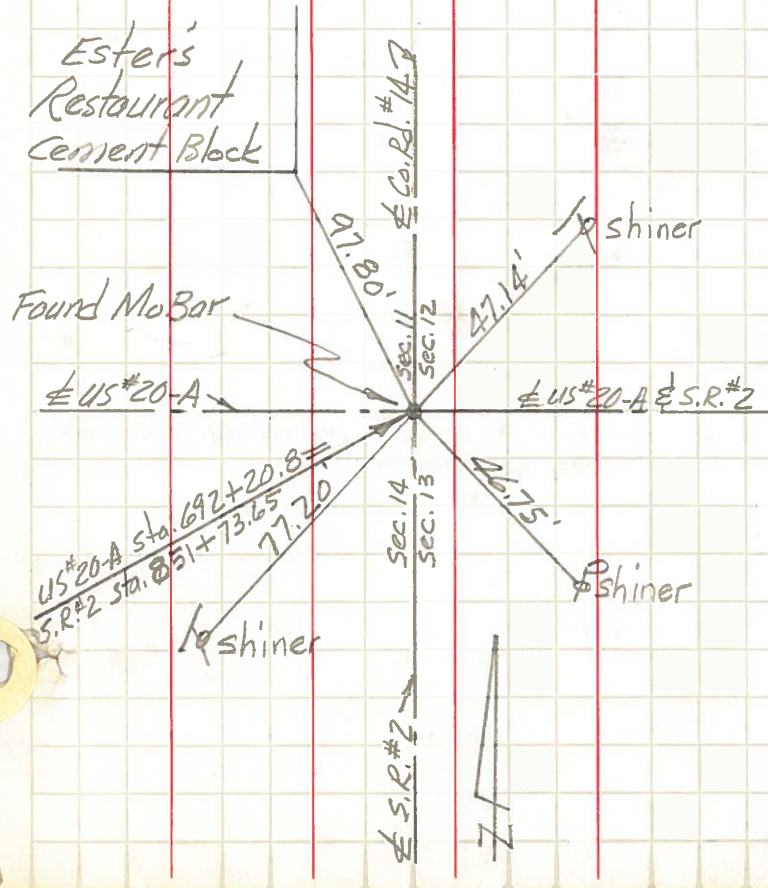 Ester's
Restaurant
Cement Block
℄ Co. Rd. #14
97.80'
shiner
47.14'
Found MoBar
Sec. 11
Sec. 12
℄ US #20-A
℄ US #20-A & S.R. #2
US #20-A sta. 692+20.8=
S.R. #2 sta. 851+73.65
77.20'
Sec. 14
Sec. 13
46.75'
shiner
shiner
℄ S.R. #2
N